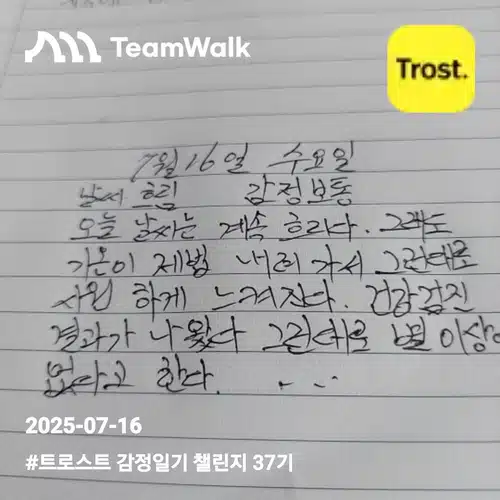 TeamWalk
Trost.
7월 16일 수요일
날씨 흐림 감정보통
오늘 날씨는 계속 흐리다. 그래도
기온이 제법 내려가서 그런대로
시원 하게 느껴진다. 건강검진
결과가 나왔다 그런대로 별 이상이
없다고 한다. . . .
2025-07-16
#트로스트 감정일기 챌린지 37기